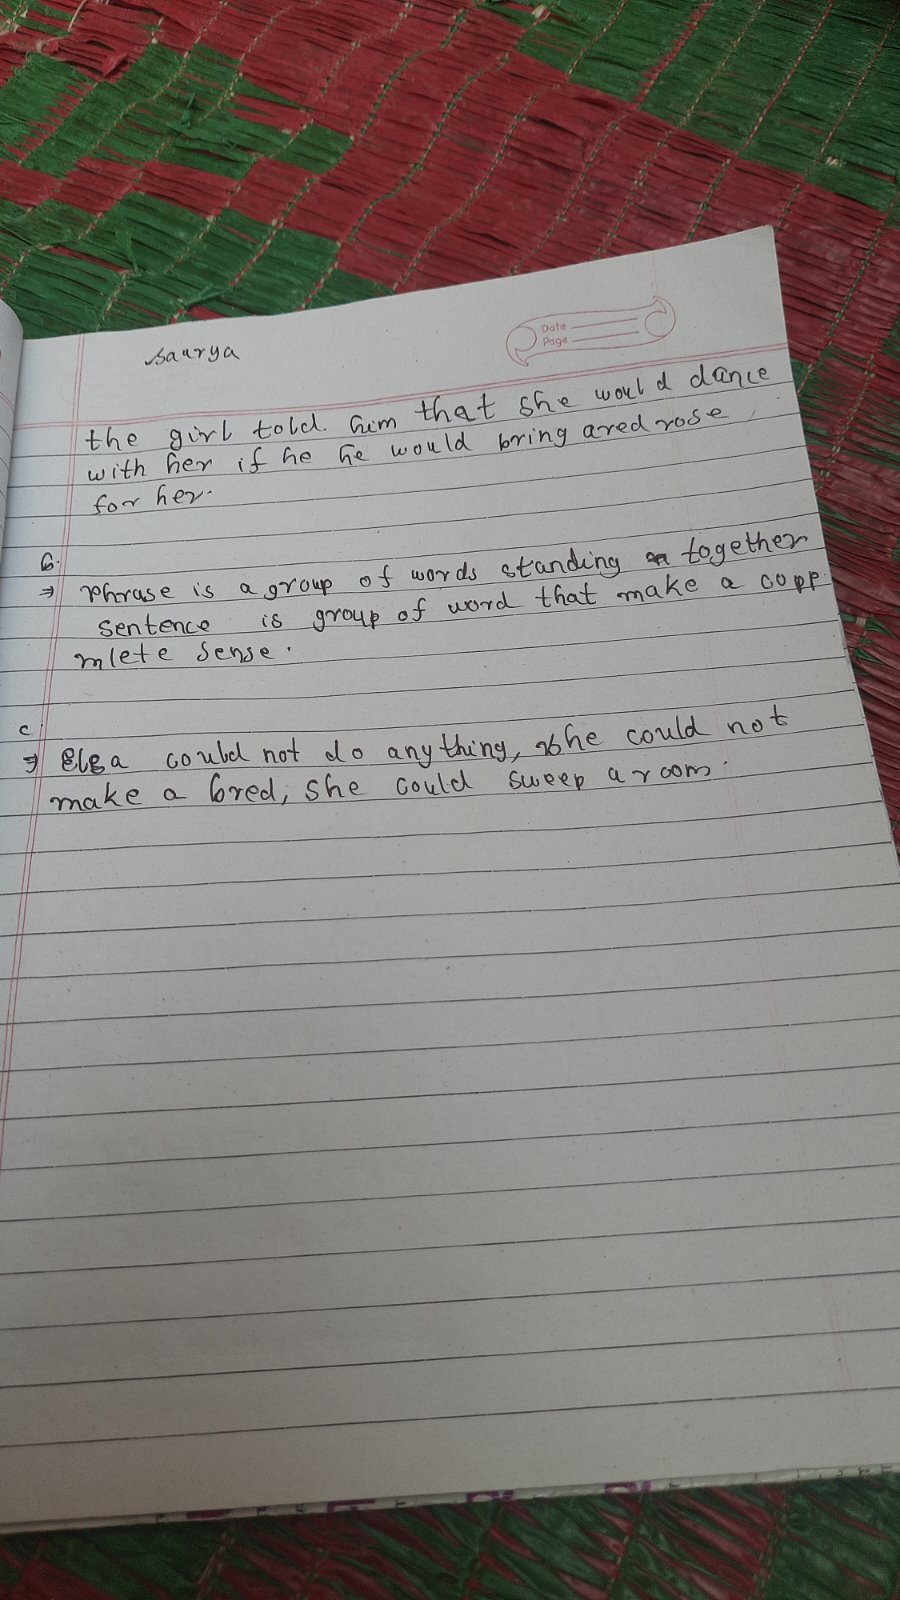 saurya
Date
Page
the girl told. him that she would dance
with her if he he would bring a red rose
for her.
B.
⇒ Phrase is a group of words standing together
sentence is group of word that make a copp
mlete sense.
C
⇒ Elsa could not do anything, she could not
make a bred, she could sweep a room.